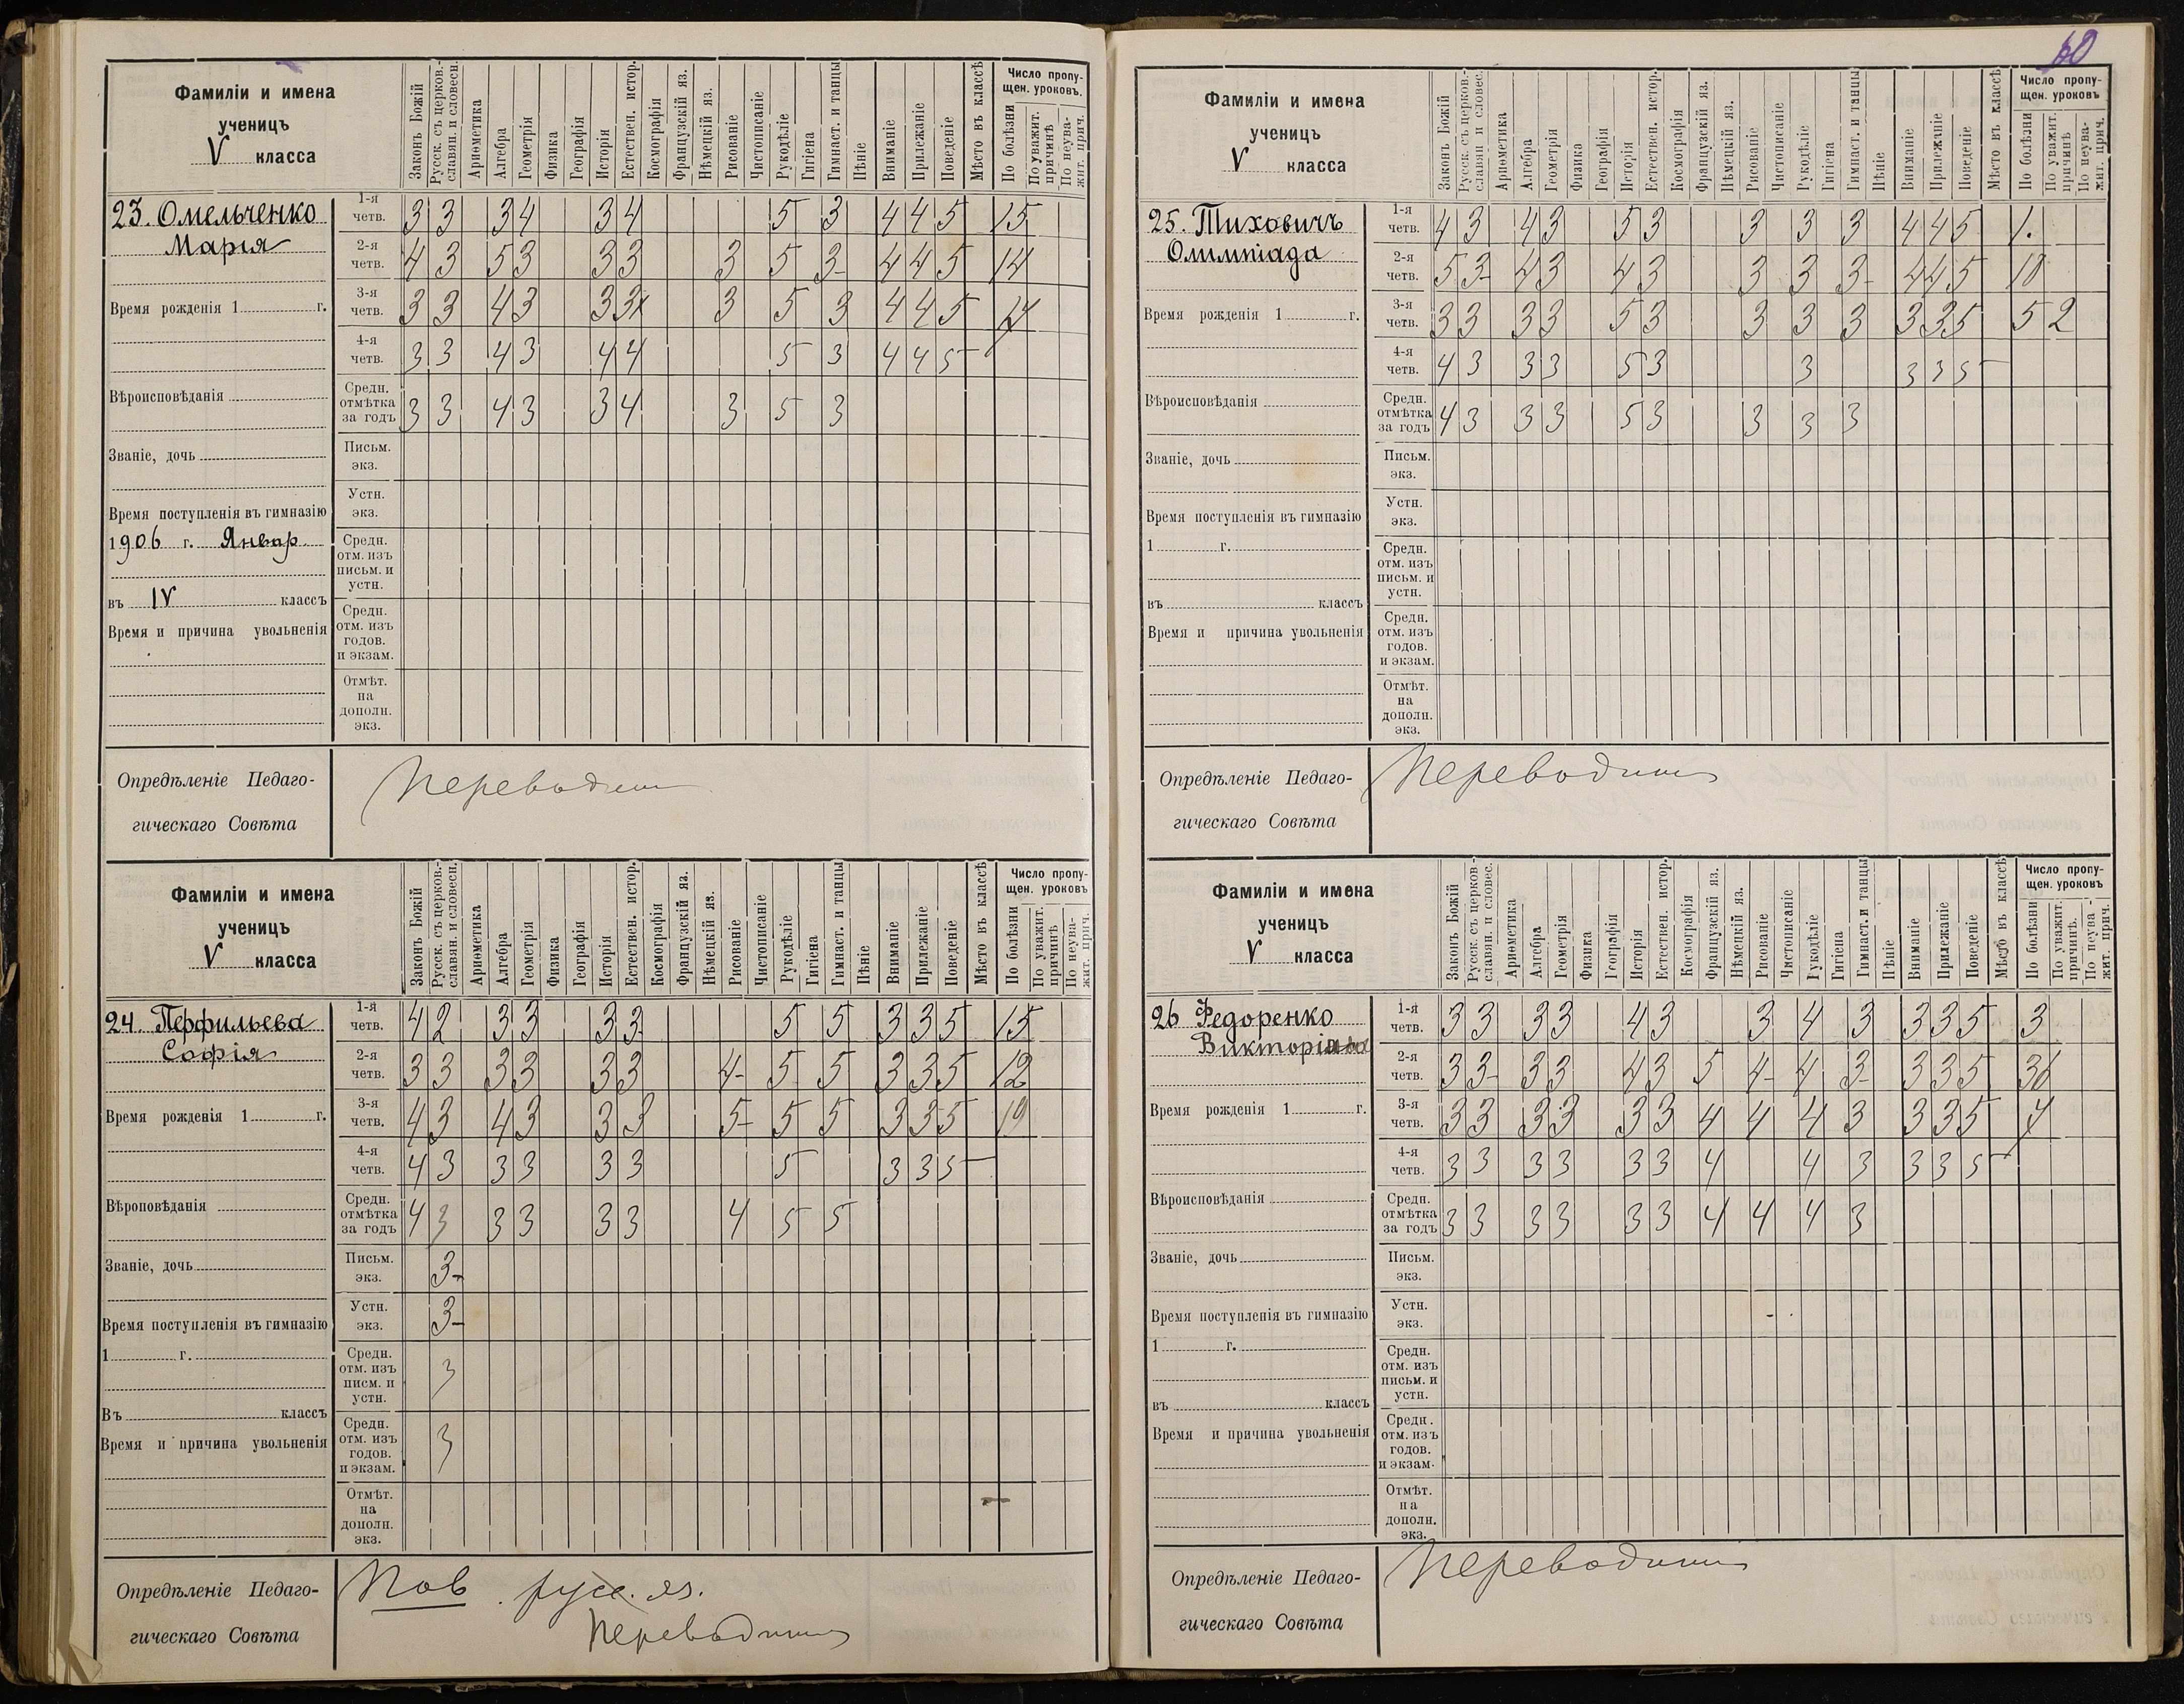 60
Фамиліи и имена
ученицъ
V класса
Законъ Божій
Русск. съ церков.-
славян. и словесн.
Ариѳметика
Алгебра
Геометрія
Физика
Географія
Исторія
Естествен. истор.
Космографія
Французскій яз.
Нѣмецкій яз.
Рисованіе
Чистописаніе
Рукодѣліе
Гигіена
Гимнаст. и танцы
Пѣніе
Вниманіе
Прилежаніе
Поведеніе
Мѣсто въ классѣ
Число пропу-
щен. уроковъ.
По болѣзни
По уважит.
причинѣ
По неува-
жит. прич.
23. Омельченко
Марія
Время рожденія 1 г.
Вѣроисповѣданія
Званіе, дочь
Время поступленія въ гимназію
1906 г. Январ.
въ IV классъ
Время и причина увольненія
1-я четв. 3 3 3 4 3 4 5 3 4 4 5 15
2-я четв. 4 3 5 3 3 3 3 5 3- 4 4 5 14
3-я четв. 3 3 4 3 3 3 3 5 3 4 4 5
4-я четв. 3 3 4 3 4 4 5 3 4 4 5
Средн. отмѣтка за годъ 3 3 4 3 3 4 3 5 3
Письм. экз.
Устн. экз.
Средн. отм. изъ письм. и устн.
Средн. отм. изъ годов. и экзам.
Отмѣт. на дополн. экз.
Опредѣленіе Педаго-
гическаго Совѣта
Переводит
Фамиліи и имена
ученицъ
V класса
Законъ Божій
Русск. съ церков.-
славян. и словесн.
Ариѳметика
Алгебра
Геометрія
Физика
Географія
Исторія
Естествен. истор.
Космографія
Французскій яз.
Нѣмецкій яз.
Рисованіе
Чистописаніе
Рукодѣліе
Гигіена
Гимнаст. и танцы
Пѣніе
Вниманіе
Прилежаніе
Поведеніе
Мѣсто въ классѣ
Число пропу-
щен. уроковъ
По болѣзни
По уважит.
причинѣ
По неува-
жит. прич.
24. Перфильева
Софія
Время рожденія 1 г.
Вѣроповѣданія
Званіе, дочь
Время поступленія въ гимназію
1 г.
Въ классъ
Время и причина увольненія
1-я четв. 4 2 3 3 3 3 5 5 3 3 5 15
2-я четв. 3 3 3 3 3 3 4- 5 5 3 3 5 12
3-я четв. 4 3 4 3 3 3 5- 5 5 3 3 5 19
4-я четв. 4 3 3 3 3 3 5 3 3 5
Средн. отмѣтка за годъ 4 3 3 3 3 3 4 5 5
Письм. экз. 3-
Устн. экз. 3-
Средн. отм. изъ писм. и устн. 3
Средн. отм. изъ годов. и экзам. 3
Отмѣт. на дополн. экз.
Опредѣленіе Педаго-
гическаго Совѣта
Пов. русс. яз.
Переводит
Фамиліи и имена
ученицъ
V класса
Законъ Божій
Русск. съ церков.-
славян и словес.
Ариѳметика
Алгебра
Геометрія
Физика
Географія
Исторія
Естествен. истор.
Космографія
Французскій яз.
Нѣмецкій яз.
Рисованіе
Чистописаніе
Рукодѣліе
Гигіена
Гимнаст. и танцы
Пѣніе
Вниманіе
Прилежаніе
Поведеніе
Мѣсто въ классѣ
Число пропу-
щен. уроковъ
По болѣзни
По уважит.
причинѣ
По неува-
жит. прич.
25. Тиховичъ
Олимпіада
Время рожденія 1 г.
Вѣроисповѣданія
Званіе, дочь
Время поступленія въ гимназію
1 г.
въ классъ
Время и причина увольненія
1-я четв. 4 3 4 3 5 3 3 3 3 4 4 5 1.
2-я четв. 5 3- 4 3 4 3 3 3 3- 4 4 5 10
3-я четв. 3 3 3 3 5 3 3 3 3 3 3 5 5 2
4-я четв. 4 3 3 3 5 3 3 3 3 5
Средн. отмѣтка за годъ 4 3 3 3 5 3 3 3 3
Письм. экз.
Устн. экз.
Средн. отм. изъ письм. и устн.
Средн. отм. изъ годов. и экзам.
Отмѣт. на дополн. экз.
Опредѣленіе Педаго-
гическаго Совѣта
Переводит
Фамиліи и имена
ученицъ
V класса
Законъ Божій
Русск. съ церков.-
славян. и словес.
Ариѳметика
Алгебра
Геометрія
Физика
Географія
Исторія
Естествен. истор.
Космографія
Французскій яз.
Нѣмецкій яз.
Рисованіе
Чистописаніе
Рукодѣліе
Гигіена
Гимнаст. и танцы
Пѣніе
Вниманіе
Прилежаніе
Поведеніе
Мѣсто въ классѣ
Число пропу-
щен. уроковъ
По болѣзни
По уважит.
причинѣ.
По неува-
жит. прич.
26 Федоренко
Викторія
Время рожденія 1 г.
Вѣроисповѣданія
Званіе, дочь
Время поступленія въ гимназію
1 г.
въ классъ
Время и причина увольненія
1-я четв. 3 3 3 3 4 3 3 4 3 3 3 5 3
2-я четв. 3 3- 3 3 4 3 5 4- 4 3- 3 3 5
3-я четв. 3 3 3 3 3 3 4 4 4 3 3 3 5
4-я четв. 3 3 3 3 3 3 4 4 3 3 3 5
Средн. отмѣтка за годъ 3 3 3 3 3 3 4 4 4 3
Письм. экз.
Устн. экз.
Средн. отм. изъ письм. и устн.
Средн. отм. изъ годов. и экзам.
Отмѣт. на дополн. экз.
Опредѣленіе Педаго-
гическаго Совѣта
Переводит